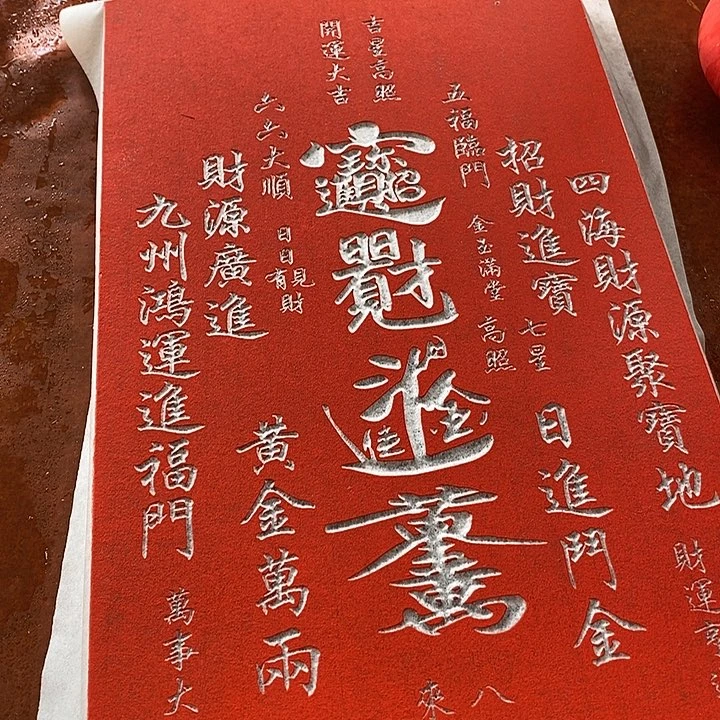 四海財源聚寶地
財運亨
招財進寶
七星
高照
日進鬥金
五福臨門
金玉滿堂
八
來
吉星高照
開運大吉
六六大順
日日有見財
財源廣進
黃金萬兩
九州鴻運進福門
萬事大